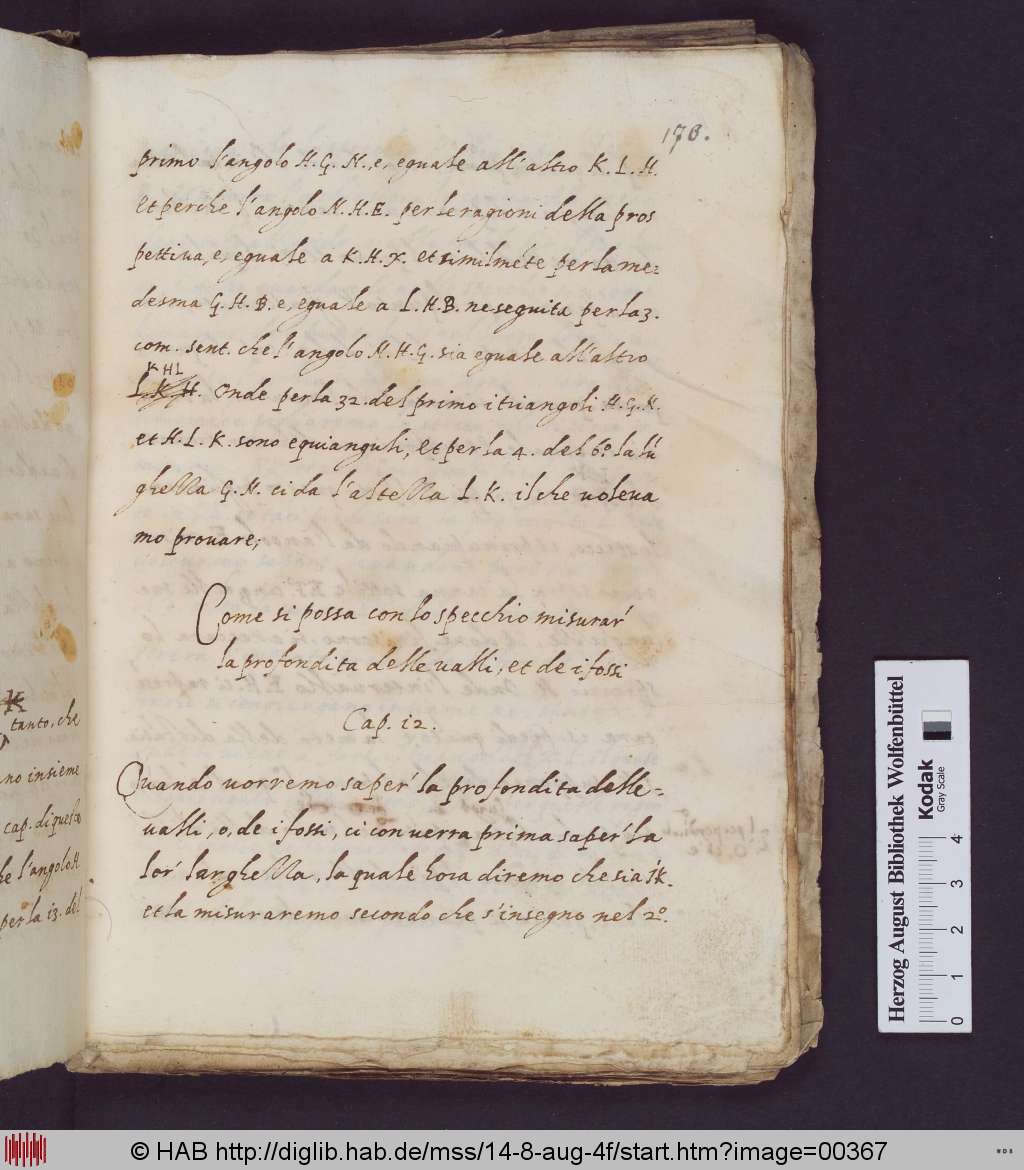 178.
primo l'angolo H. G. N., e, eguale all'altro K. L. H.
et perche l'angolo N. H. E. per le ragioni della pros
pettiua, e, eguale a K. H. X. et similmẽte per la me=
desma G. H. D. e, eguale a L. H. B. ne seguita per la 3.
com. sent. che l'angolo N. H. G. sia eguale all'altro
K H L
L. K. H. Onde per la 32. del primo i triangoli H. G. N.
et H. L. K. sono equianguli, et per la 4. del 6.º la lũ
ghezza G. N. ci da l'altezza L. K. il che uoleua
mo prouare;
Come si possa con lo specchio misurar'
la profondita delle ualli, et de i fossi
Cap. 12.
Quando uorremo saper' la profondita delle=
ualli, o, de i fossi, ci conuerra prima saper' la
lor' larghezza, la quale hora diremo che sia IK.
et la misuraremo secondo che s'insegno nel 2.º
K
tanto, che
no insieme
cap. di questo
he l'angolo H
per la 13. del
Herzog August Bibliothek Wolfenbüttel
Kodak
Gray Scale
0 1 2 3 4
© HAB http://diglib.hab.de/mss/14-8-aug-4f/start.htm?image=00367